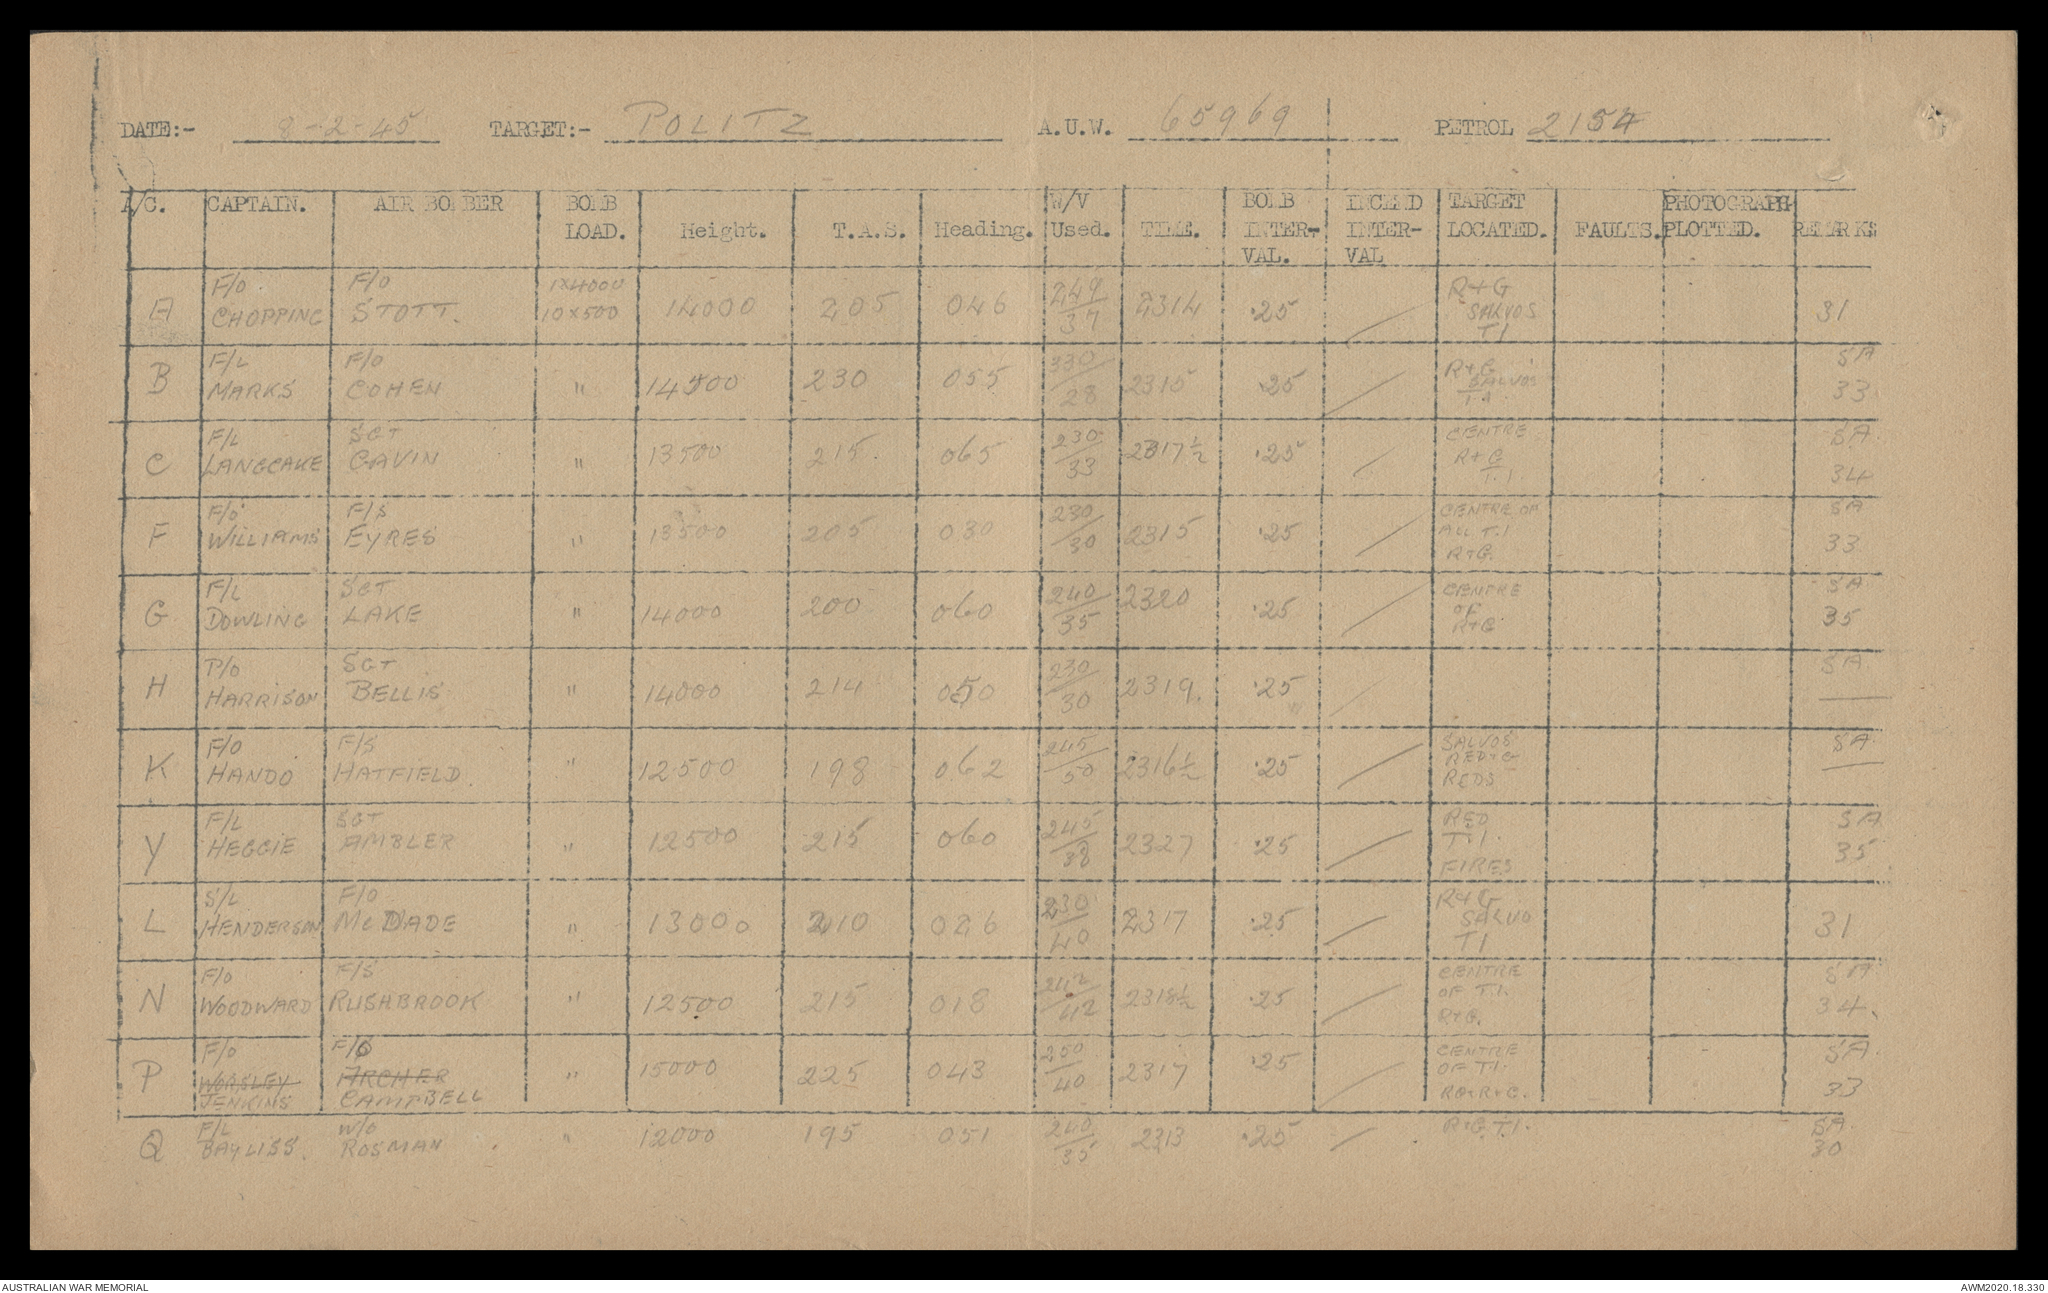 DATE:- 8-2-45 TARGET:- POLITZ A.U.W. 65969 PETROL 2154
A/C. CAPTAIN. AIR BOMBER BOMB LOAD. Height. T.A.S. Heading. W/V Used. TIME. BOMB INTER-VAL. INCEND INTER-VAL TARGET LOCATED. FAULTS. PHOTOGRAPH PLOTTED. REMARKS
A F/O CHOPPING F/O STOTT. 1x4000 10x500 14000 205 046 249/37 2314 .25 / R+G SALVOS T1 31
B F/L MARKS F/O COHEN " 14500 230 055 330/28 2315 .25 / R+G SALVOS T.1. SA 33
C F/L LANGCAKE SGT GAVIN " 13500 215 065 230/33 2317½ .25 / CENTRE R+G T.1 SA 34
F F/O WILLIAMS F/S EYRES " 13500 205 030 230/30 2315 .25 / CENTRE OF ALL T.1 R+G. SA 33
G F/L DOWLING SGT LAKE " 14000 200 060 240/35 2320 .25 / CENTRE OF R+G SA 35
H P/O HARRISON SGT BELLIS " 14000 214 050 230/30 2319. .25 / SA —
K F/O HANDO F/S HATFIELD. " 12500 198 062 245/50 2316½ .25 / SALVOS RED+G REDS SA —
Y F/L HEGGIE SGT AMBLER " 12500 215 060 245/38 2327 .25 / RED T.1. FIRES SA 35
L S/L HENDERSON F/O McDADE " 13000 210 026 230/40 2317 .25 / R+G SALVO T1 31
N F/O WOODWARD F/S RUSHBROOK " 12500 215 018 2318½ .25 / CENTRE OF T.1. R+G. SA 34
P F/O WORSLEY JENKINS F/O ARCHER CAMPBELL " 15000 225 043 250/40 2317 .25 / CENTRE OF T.1. SA 33
Q F/L BAYLISS. W/O ROSMAN " 12000 195 051 240/35 2313 .25 / R+G.T.1. SA 30
AUSTRALIAN WAR MEMORIAL AWM2020.18.330